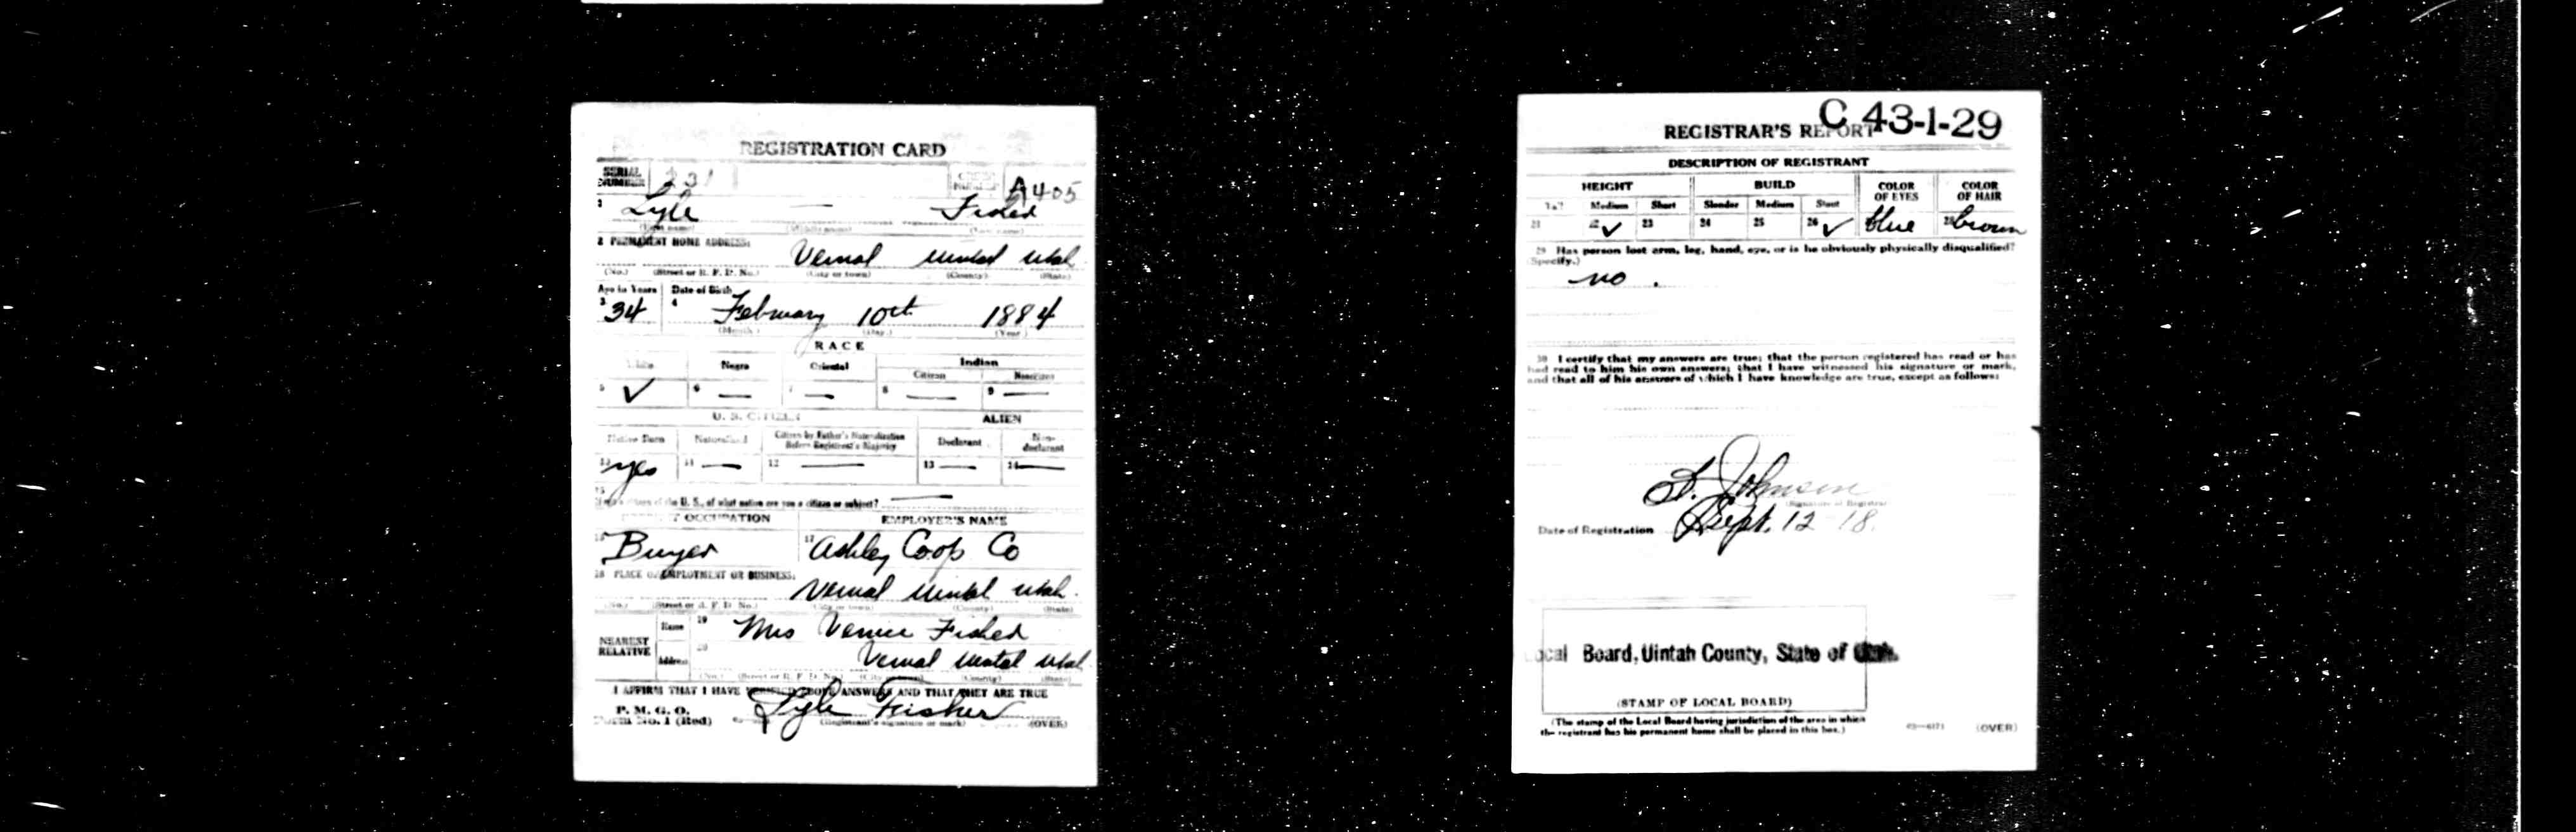 REGISTRATION CARD
SERIAL NUMBER 231 A405
1 Lyle — Fisher
(First name) (Middle name) (Last name)
2 PERMANENT HOME ADDRESS:
Vernal Uintah Utah
(No.) (Street or R. F. D. No.) (City or town) (County) (State)
Age in Years Date of Birth
3 34 4 February 10th 1884
(Month) (Day) (Year)
RACE
White Negro Oriental Indian
Citizen Noncitizen
5 ✓ 6 — 7 — 8 — 9 —
U. S. CITIZEN ALIEN
Native Born Naturalized Citizen by Father's Naturalization Before Registrant's Majority Declarant Non-declarant
10 yes 11 — 12 — 13 — 14 —
15
If not a citizen of the U. S., of what nation are you a citizen or subject? —
PRESENT OCCUPATION EMPLOYER'S NAME
16 Buyer 17 Ashley Coop Co
18 PLACE OF EMPLOYMENT OR BUSINESS:
Vernal Uintah Utah
(No.) (Street or R. F. D. No.) (City or town) (County) (State)
NEAREST RELATIVE Name 19 Mrs Fisher
Address 20 Vernal Uintah Utah
(No.) (Street or R. F. D. No.) (City or town) (County) (State)
I AFFIRM THAT I HAVE VERIFIED ABOVE ANSWERS AND THAT THEY ARE TRUE
P. M. G. O.
Form No. 1 (Red) Lyle Fisher
(Registrant's signature or mark) (OVER)
C 43-1-29
REGISTRAR'S REPORT
DESCRIPTION OF REGISTRANT
HEIGHT BUILD COLOR OF EYES COLOR OF HAIR
Tall Medium Short Slender Medium Stout
21 22 ✓ 23 24 25 26 ✓ blue 28 brown
29 Has person lost arm, leg, hand, eye, or is he obviously physically disqualified?
(Specify.)
no .
30 I certify that my answers are true; that the person registered has read or has
had read to him his own answers; that I have witnessed his signature or mark,
and that all of his answers of which I have knowledge are true, except as follows:
Johnson
(Signature of Registrar)
Date of Registration Sept. 12 18
Local Board, Uintah County, State of Utah.
(STAMP OF LOCAL BOARD)
(The stamp of the Local Board having jurisdiction of the area in which
the registrant has his permanent home shall be placed in this box.)
(OVER)